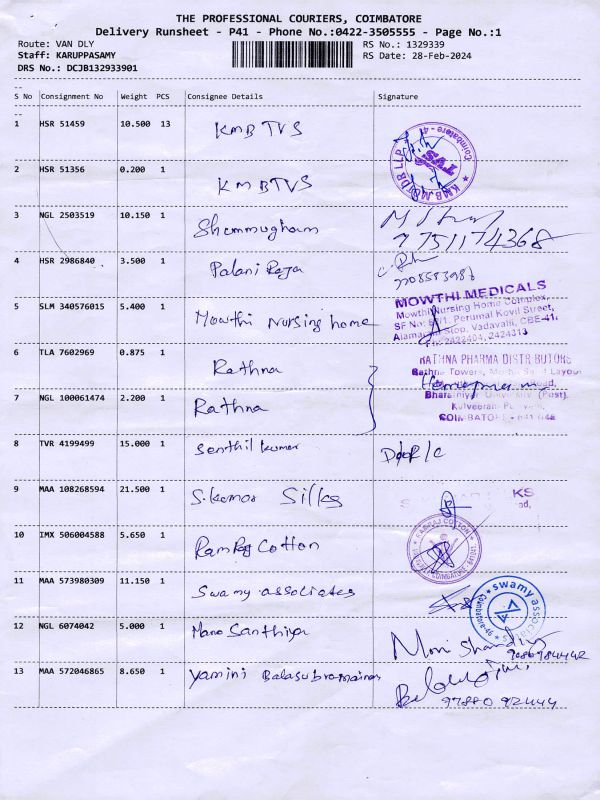 THE PROFESSIONAL COURIERS, COIMBATORE
Delivery Runsheet - P41 - Phone No.:0422-3505555 - Page No.:1
Route: VAN DLY
RS No.: 1329339
Staff: KARUPPASAMY
RS Date: 28-Feb-2024
DRS No.: DCJB132933901
--
S No Consignment No Weight PCS Consignee Details Signature
--
1 HSR 51459 10.500 13 KMB TVS
2 HSR 51356 0.200 1 KMBTVS
Coimbatore - 4
TVS
KMB
LLP
3 NGL 2503519 10.150 1 Shanmugham
7751174368
4 HSR 2986840 3.500 1 Palani Raja
5 SLM 340576015 5.400 1 Mowthi Nursing home
MOWTHI MEDICALS
Mowthi Nursing Home Complex,
SF No: Perumal Kovil Street,
Stop, Vadavalli, CBE-41.
2422404, 2424313
6 TLA 7602969 0.875 1 Rathna
7 NGL 100061474 2.200 1 Rathna
RATHNA PHARMA DISTRIBUTORS
Rathna Towers, Layout
Road,
Bharathiyar University (Post)
COIMBATORE - 641 046
8 TVR 4199499 15.000 1 Senthil kumar
9 MAA 108268594 21.500 1 S.kumar Silks
KS
ad,
10 IMX 506004588 5.650 1 Ramraj Cotton
RAMRAJ COTTON
COIMBATORE 641041
11 MAA 573980309 11.150 1 Swamy associates
swamy associa
Coimbatore-46
12 NGL 6074042 5.000 1 Mano Santhiya
13 MAA 572046865 8.650 1 Yamini Balasubramainan
97880 92444